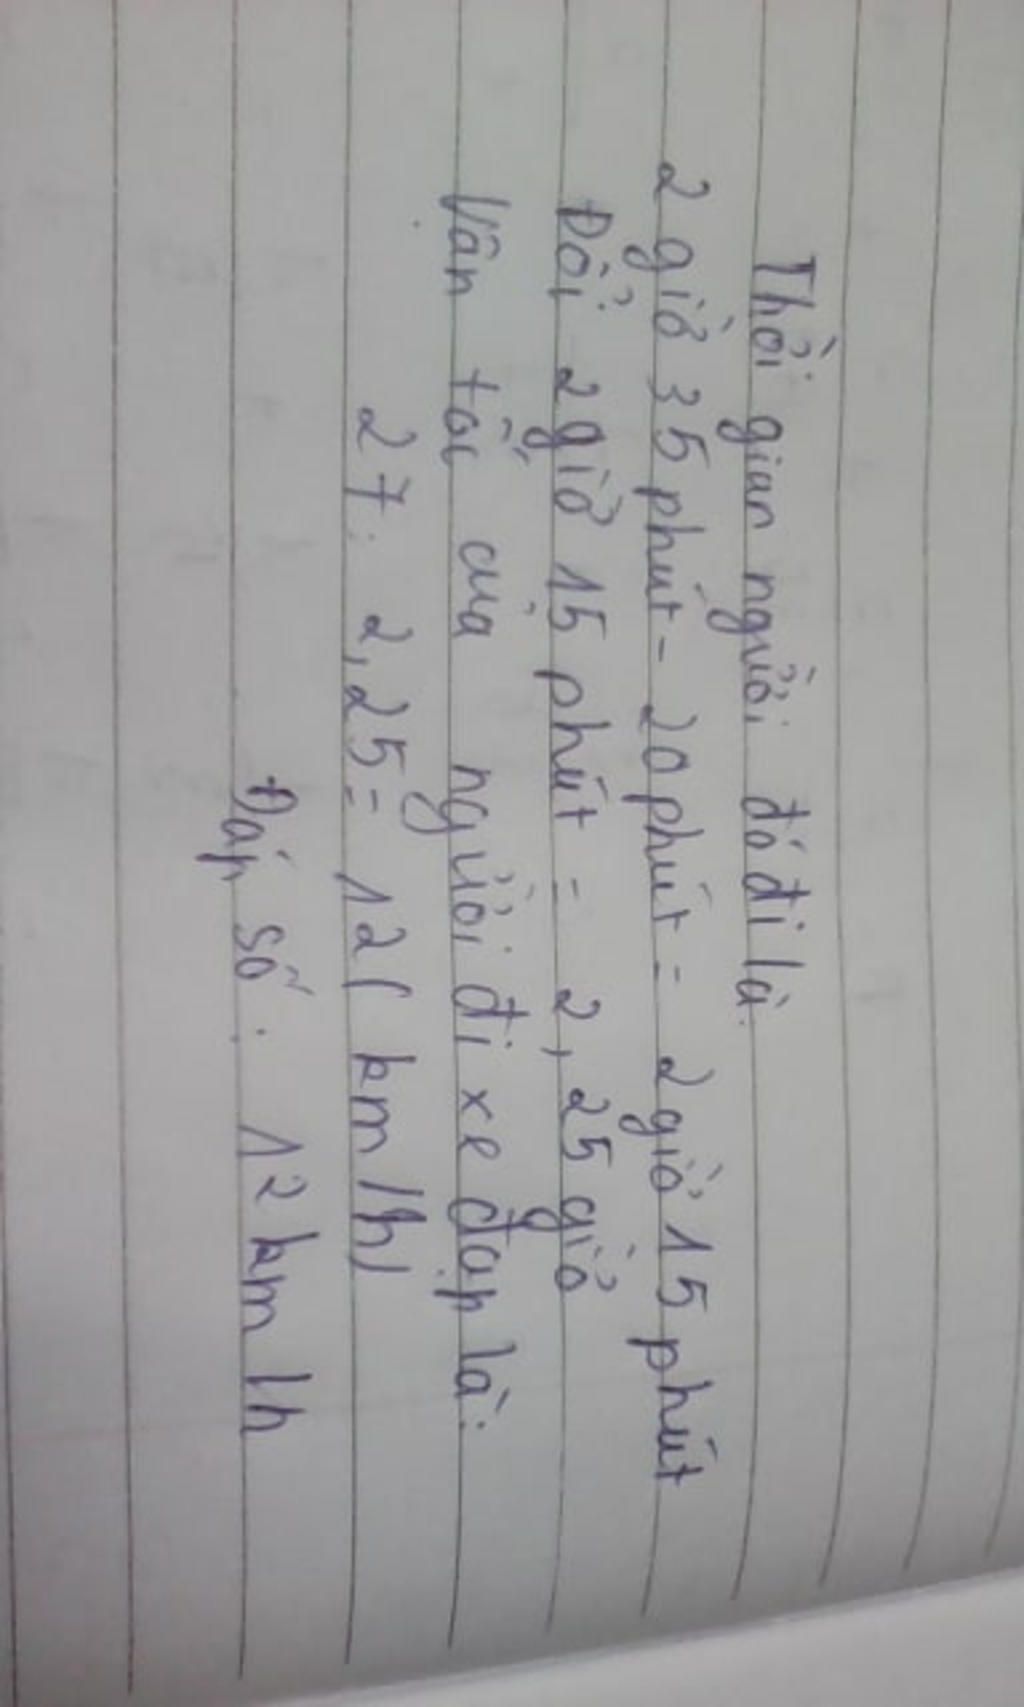 Thời gian người đó đi là:
2 giờ 35 phút - 20 phút = 2 giờ 15 phút
Đổi 2 giờ 15 phút = 2,25 giờ
Vận tốc của người đi xe đạp là:
27 : 2,25 = 12 ( km/h)
Đáp số : 12 km/h